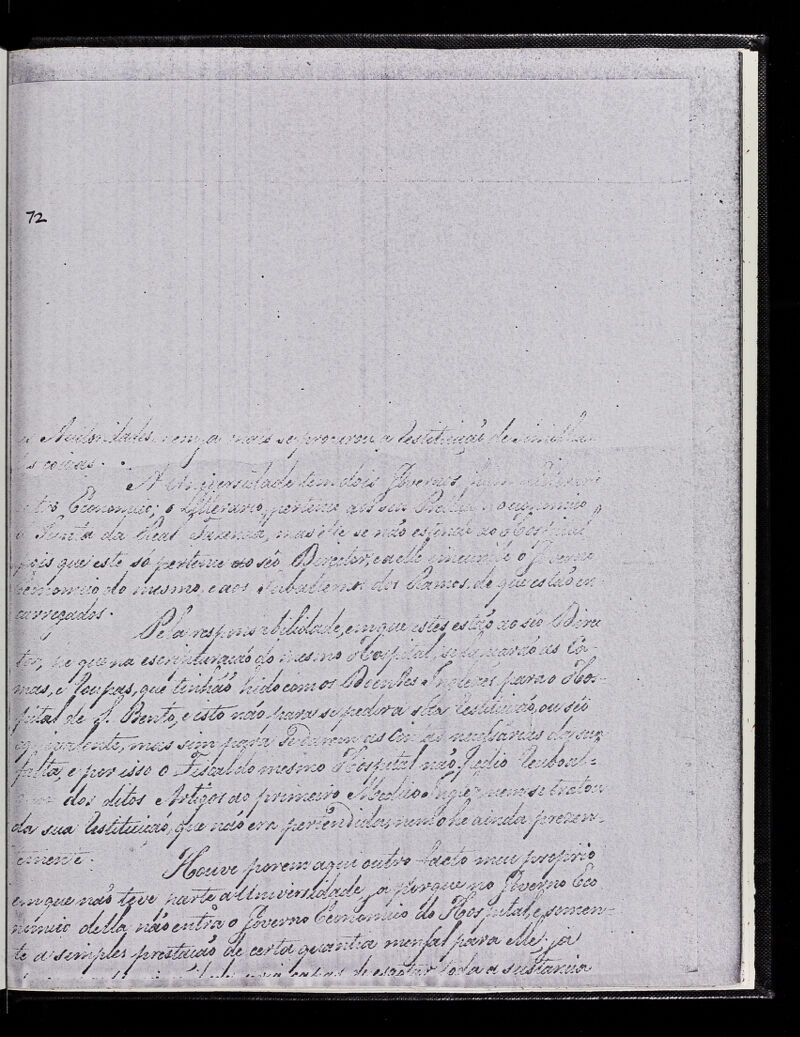 72
Authoridades, nem já mais se procurou a restituição de simílha
cousas.
A Universidade tem dois Governos, hum Litterari
outro Economico; o Litterario, pertence aos seu o economico
á Junta da Real Fazenda, mas este se não estende ao Hospital,
pois que este só pertence ao séo Director, e a elle incumbe o Governo
economico do mesmo, e aos Subalternos dos Ramos, de que estão en-
carregados.
Pela responsabilidade, em que estes estão ao séo Dire
tor, he que na escripturação do mesmo Hospital, se as Ca-
mas, e Roupas, que tinhão hido com os Doentes Inglezes para o Hos-
pital de S. Bento, e isto não para se pedir a sua restituição, ou séo
equivalente, mas sim para se darem as da sua
falta, e por isso o Fiscal do mesmo Hospital não pedio Recibo al-
gum dos ditos Artigos ao primeiro Medico Inglez, nem se tratou
da sua restituição, que não era pertendida, nem o he ainda prezen-
temente.
Houve porem aqui outro facto meu proprio
em que não teve parte a Universidade, já porque no Governo Eco
nomico della não entra o Governo Economico do Hospital, e somen-
te a simples prestação de certa quantia mensal para elle; já
capas de esgotar toda a sustancia